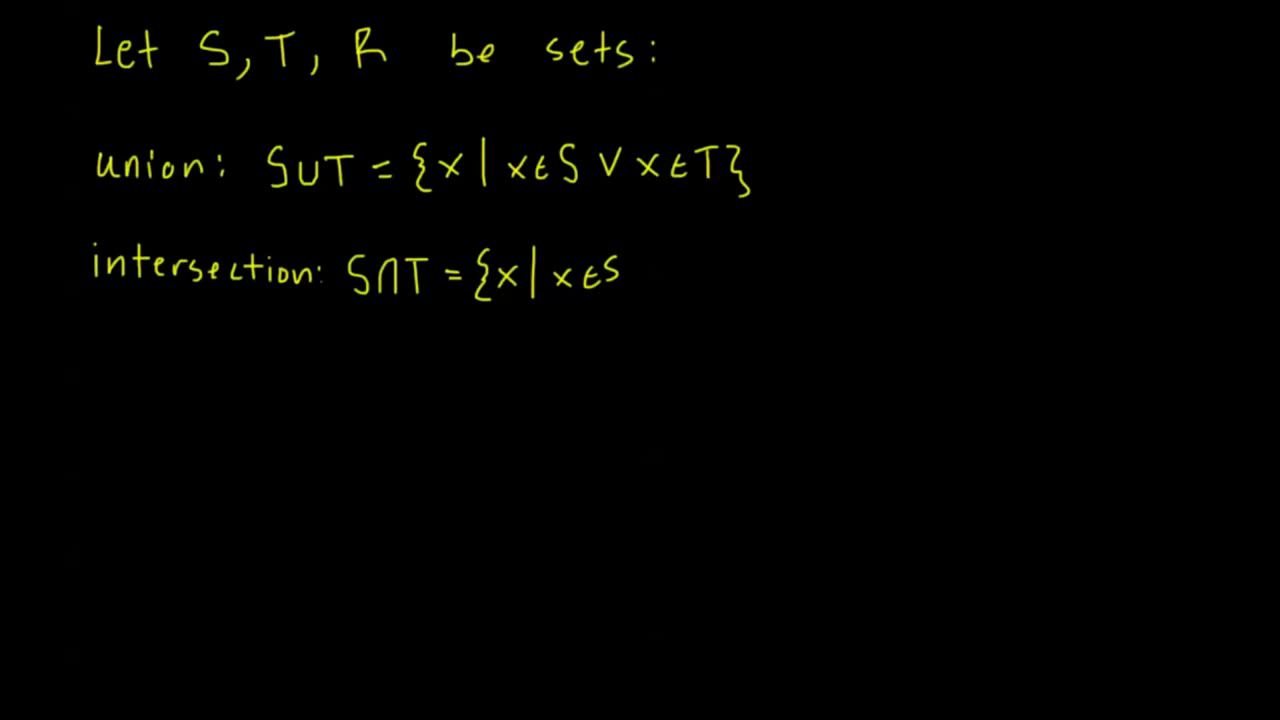 Let S, T, R be sets:
union: S∪T = {x | x∈S ∨ x∈T}
intersection: S∩T = {x | x∈S